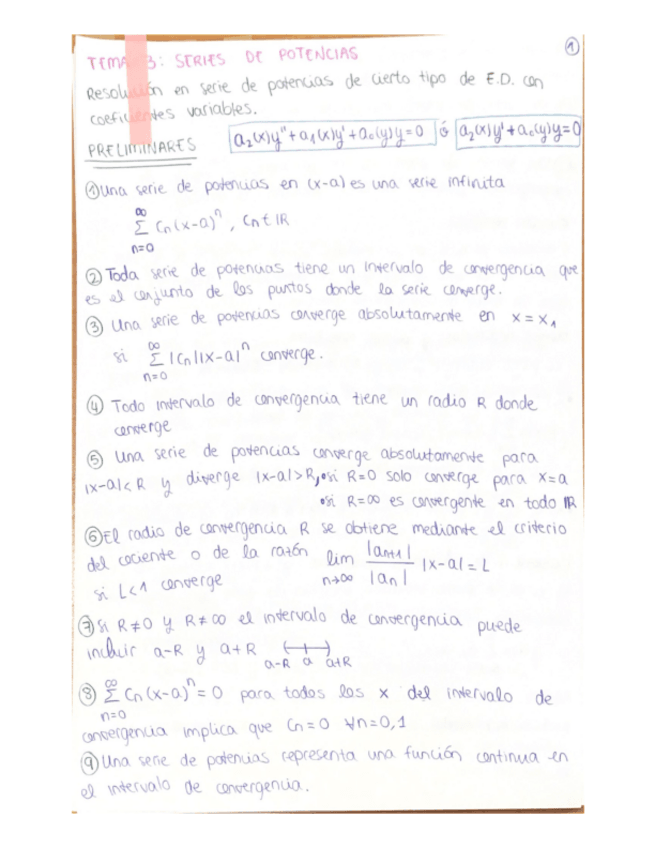 ①
TEMA 3: SERIES DE POTENCIAS
Resolución en serie de potencias de cierto tipo de E.D. con
coeficientes variables.
PRELIMINARES a₂(x)y''+a₁(x)y'+a₀(y)y=0 ó a₂(x)y'+a₀(y)y=0
① Una serie de potencias en (x-a) es una serie infinita
∞
Σ Cn(x-a)ⁿ, Cn∈ℝ
n=0
② Toda serie de potencias tiene un intervalo de convergencia que
es el conjunto de los puntos donde la serie converge.
③ Una serie de potencias converge absolutamente en x=x₁
∞
si Σ |Cn||x-a|ⁿ converge.
n=0
④ Todo intervalo de convergencia tiene un radio R donde
converge
⑤ Una serie de potencias converge absolutamente para
|x-a|<R y diverge |x-a|>R, •si R=0 solo converge para x=a
•si R=∞ es convergente en todo ℝ
⑥ El radio de convergencia R se obtiene mediante el criterio
del cociente o de la razón lim |an+1| / |an| |x-a|=L
n→∞
si L<1 converge
⑦ Si R≠0 y R≠∞ el intervalo de convergencia puede
incluir a-R y a+R
a-R a a+R
∞
⑧ Σ Cn(x-a)ⁿ=0 para todos los x del intervalo de
n=0
convergencia implica que Cn=0 ∀n=0,1
⑨ Una serie de potencias representa una función continua en
el intervalo de convergencia.